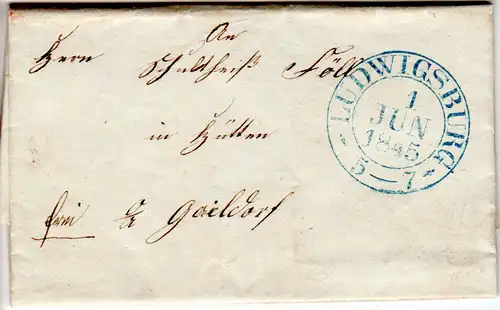 An
Herrn Schultheiß Föll
in Hütten
frei Gaildorf
LUDWIGSBURG
1
JUN
1845
5—7